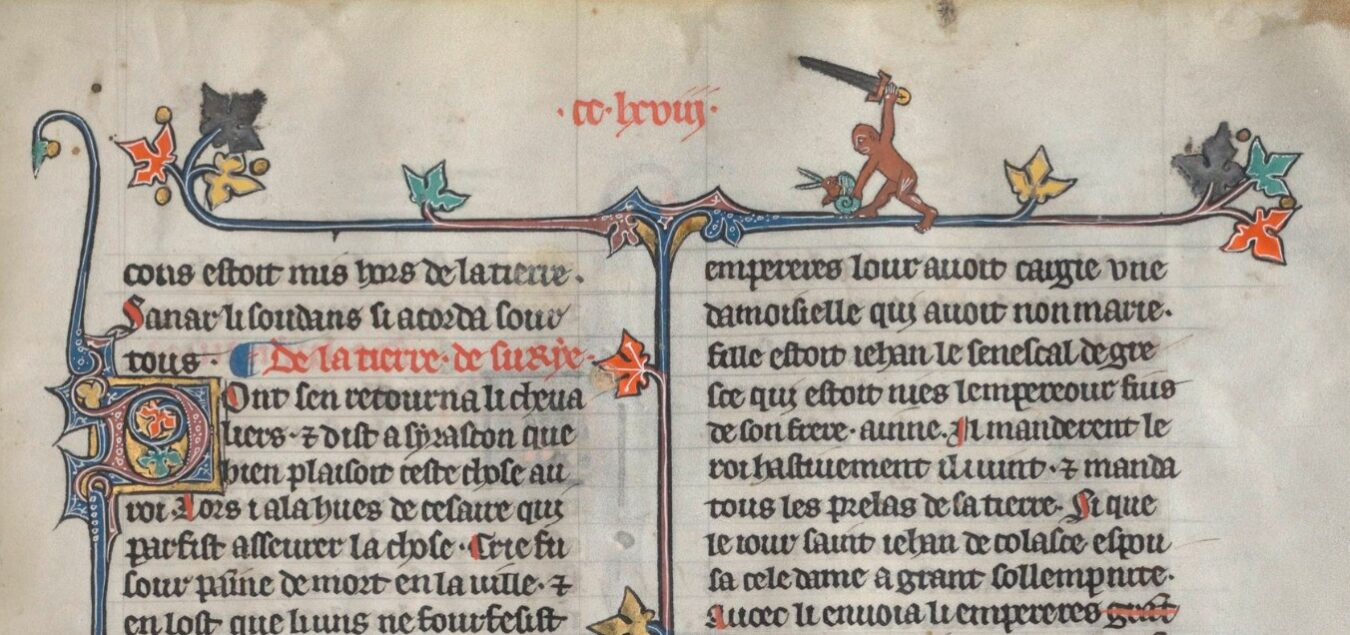 ·cc·lxviij·
cons estoit mis hors de la tierre.
Sanar li soudans si acorda sour
tous. De la tierre. de surye.
DOnt sen retourna li cheua
liers. ⁊ dist a syraston que
bien plaisoit ceste chose au
roi. Lors i ala hues de cesaire qui
parfist asseurer la chose. Crie fu
sour paine de mort en la uille. ⁊
en lost que li uns ne fourfesist
empereres lour auoit cargie vne
damoisielle qui auoit non marie.
fille estoit iehan le senescal de gre
sce qui estoit nies lempereour fius
de son frere. ainne. Il manderent le
roi hastiuement il uint. ⁊ manda
tous les prelas de sa tierre. Si que
le iour saint iehan de colasce espou
sa cele dame a grant sollempnite.
Auoec li enuoia li empereres